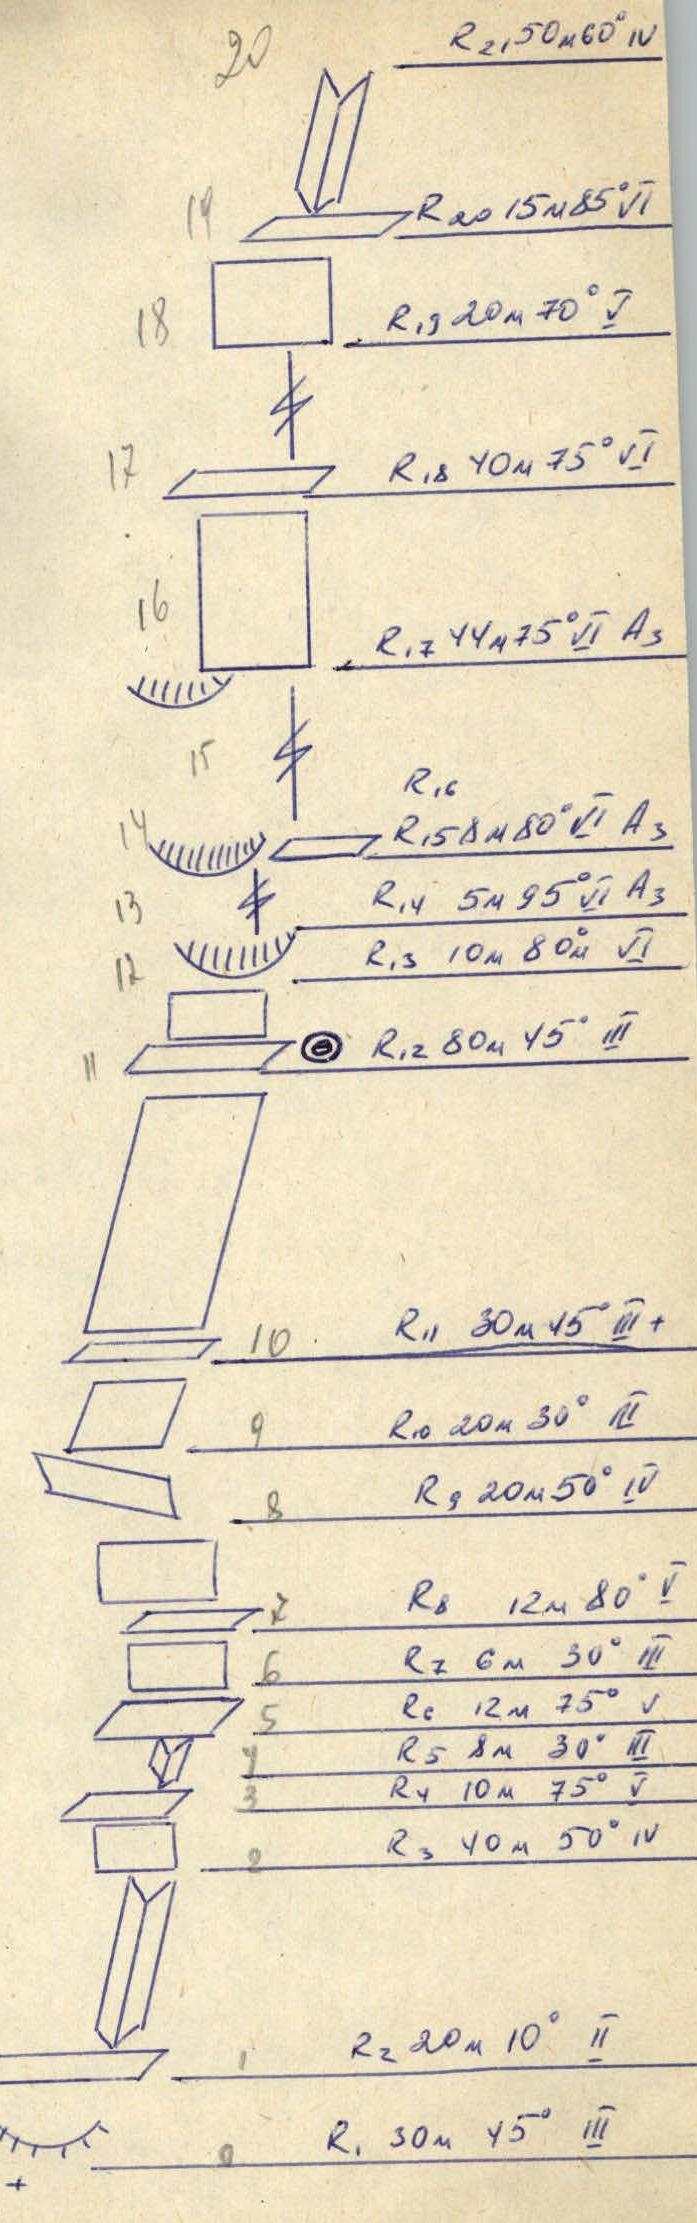 20 R21 50м 60° IV
19 R20 15м 85° VI
18 R19 20м 70° V
17 R18 40м 75° VI
16 R17 44м 75° VI А3
15 R16
14 R15 8м 80° VI А3
13 R14 5м 95° VI А3
12 R13 10м 80м VI
11 R12 80м 45° III
10 R11 30м 45° III+
9 R10 20м 30° III
8 R9 20м 50° IV
7 R8 12м 80° V
6 R7 6м 30° III
5 R6 12м 75° V
4 R5 8м 30° III
3 R4 10м 75° V
2 R3 40м 50° IV
1 R2 20м 10° II
0 R1 30м 45° III
+